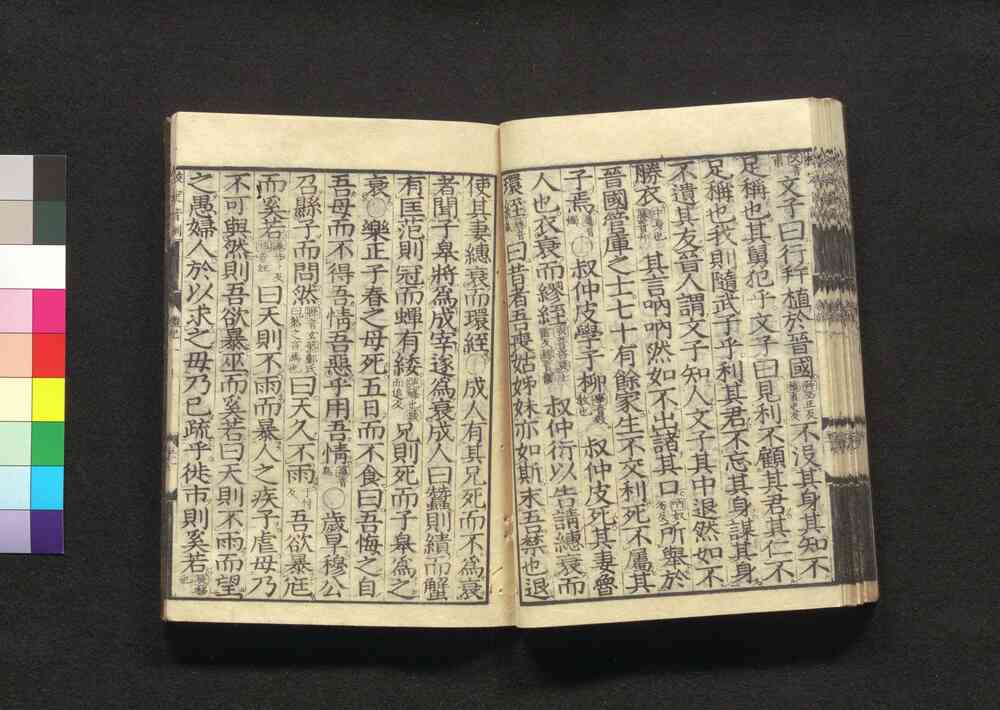 文子曰行幷植於晉國不沒其身其知不
足稱也其舅犯乎文子曰見利不顧其君其仁不
足稱也我則隨武子乎利其君不忘其身謀其身
不遺其友晉人謂文子知人文子其中退然如不
勝衣其言吶吶然如不出諸其口所舉於
晉國管庫之士七十有餘家生不交利死不屬其
子焉○叔仲皮學子柳○叔仲皮死其妻魯
人也衣衰而繆絰叔仲衍以告請繐衰而
環絰曰昔者吾喪姑姊妹亦如斯末吾禁也退
使其妻繐衰而環絰○成人有其兄死而不爲衰
者聞子皐將爲成宰遂爲衰成人曰蠶則績而蟹
有匡范則冠而蟬有緌兄則死而子皐爲之
衰○樂正子春之母死五日而不食曰吾悔之自
吾母而不得吾情吾惡乎用吾情○歲旱穆公
召縣子而問然曰天久不雨吾欲暴尫
而奚若曰天則不雨而暴人之疾子虐毋乃
不可與然則吾欲暴巫而奚若曰天則不雨而望
之愚婦人於以求之毋乃已疏乎徙市則奚若